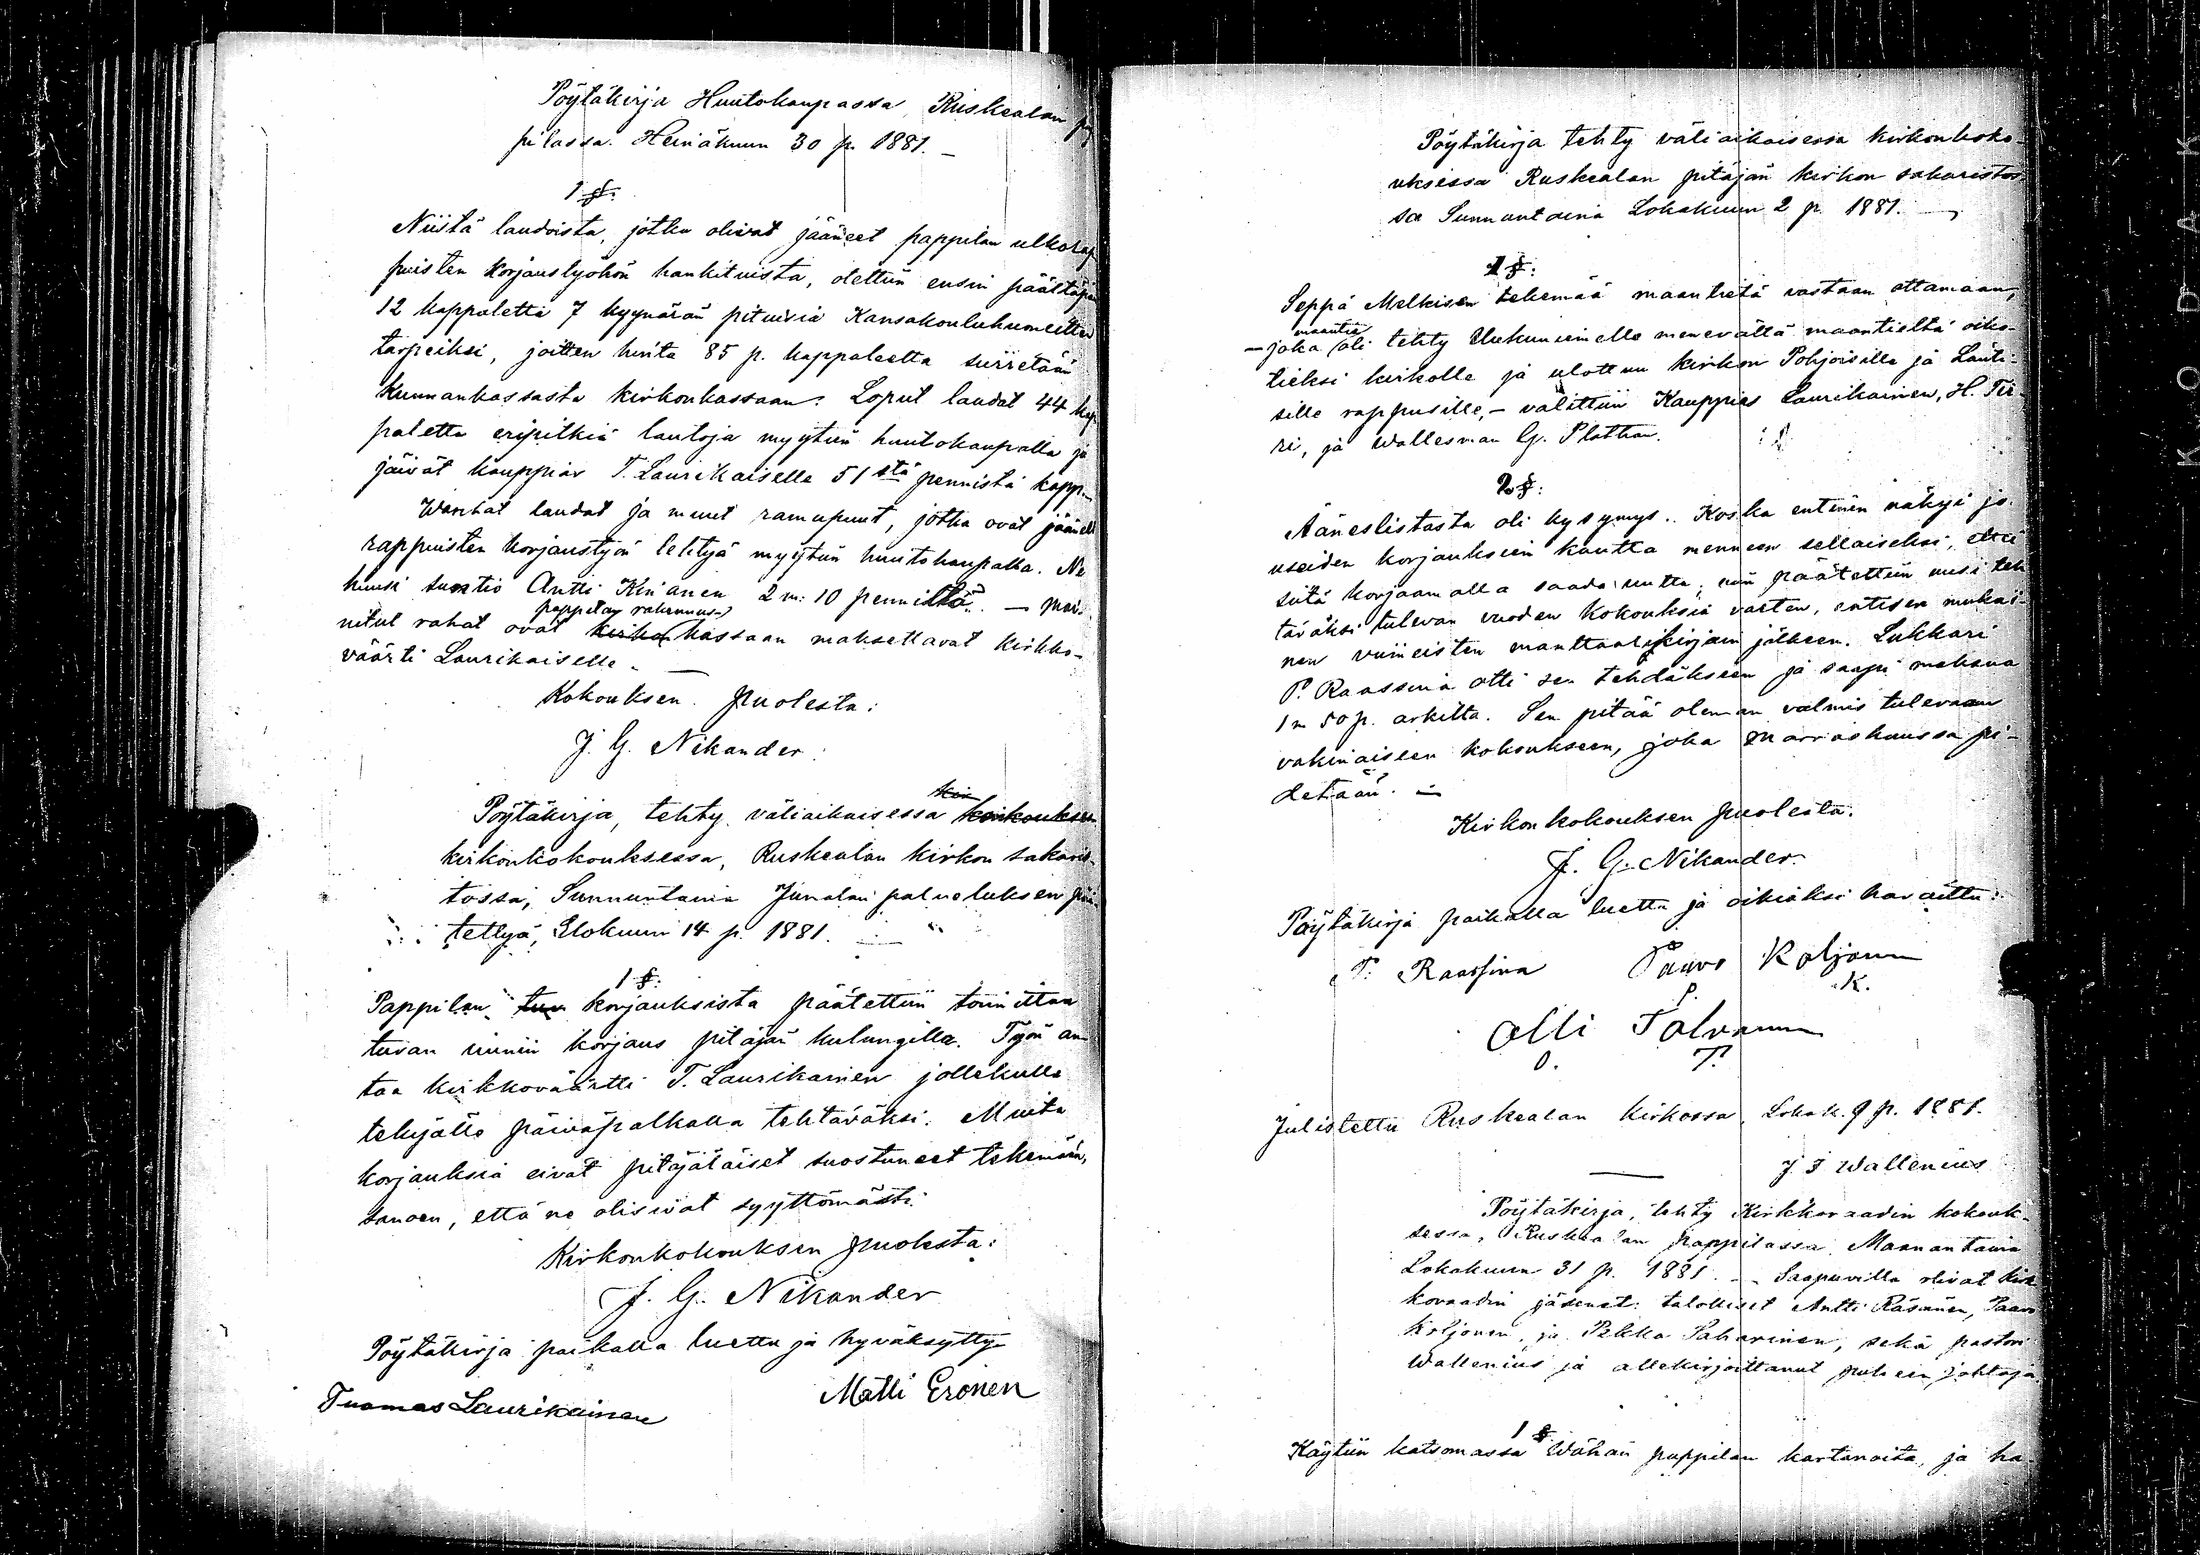 Pöytäkirja Huutokaupassa Ruskealan pap
pilassa Heinäkuun 30 p. 1881. –
1 §.
Niistä laudoista, jotka olivat jääneet pappilan ulkorap
puisten korjaustyöhön hankituista, otettiin ensin päältäpäin
12 kappaletta 7 kyynärän pituisia Kansakouluhuoneitten
tarpeiksi, joitten hinta 85 p. kappaleelta siirretään
Kunnankassasta kirkonkassaan. Loput laudat 44 kap
paletta eripitkiä lautoja myytiin huutokaupalla ja
jäivät kauppias T. Laurikaiselle 51 stä pennistä kapp. –
Wanhat laudat ja muut ramupuut, jotka ovat jääneet
rappuisten korjaustyön tehtyä myytiin huutokaupalla. Ne
huusi suntio Antti Kinanen 2 m: 10 pennillä. – Mai-
nitut rahat ovat pappilan rakennus- kassaan maksettavat kirkko-
väärti Laurikaiselle. –
Kokouksen puolesta:
J. G. Nikander.
Pöytäkirja, tehty väliaikaisessa
kirkonkokouksessa, Ruskealan kirkon sakaris-
tossa, Sunnuntaina Jumalan palveluksen pää-
tettyä, Elokuun 14 p. 1881.
1 §.
Pappilan korjauksista päätettiin toimittaa
tuvan uunin korjaus pitäjän kulungilla. Työn an-
taa kirkkoväärtti T. Laurikainen jollekulle
tekijälle päiväpalkalla tehtäväksi. Muita
korjauksia eivät pitäjäläiset suostuneet tekemään,
sanoen, että ne olisivat syyttömästi.
Kirkonkokouksen puolesta:
J. G. Nikander
Pöytäkirja paikalla luettu ja hyväksytty
Tuomas Laurikainen Matti Eronen
Pöytäkirja tehty väliaikaisessa kirkonkoko-
uksessa Ruskealan pitäjän kirkon sakaristos-
sa Sunnuntaina Lokakuun 2 p. 1881. –
1 §:
Seppä Melkisen tekemää maantietä vastaan ottamaan,
– joka maantie oli tehty menevältä maantieltä oiko-
tieksi kirkolle ja ulottuu kirkon Pohjoisille ja Länti-
sille rappusille, – valittiin Kauppias Laurikainen, H. Tii-
ri, ja Wallesman G. Plathan.
2 §:
Äänestlistasta oli kysymys. Koska entinen näkyi jo
useiden korjauksien kautta menneen sellaiseksi, että
siitä korjaamalla saada uutta; niin päätettiin uusi teh
täväksi tulevan vuoden kokouksia varten, entisen mukai-
nen viimeisten manttaalikirjain jälkeen. Lukkari
P. Raassina otti sen tehdäkseen ja saapi maksua
1 m 50 p. arkilta. Sen pitää oleman valmis tulevaan
vakinaiseen kokoukseen, joka Marraskuussa pi-
detään. –
Kirkonkokouksen puolesta:
J. G. Nikander.
Pöytäkirja paikalla luettu ja oikiaksi havaittu:
P. Raassina Paavo Koljonen
P. K.
Olli Tolvanen
O. T.
Julistettu Ruskealan kirkossa Lokak. 9 p. 1881.
J F Wallenius
Pöytäkirja, tehty Kirkkoraadin kokouk-
sessa, Ruskealan pappilassa Maanantaina
Lokakuun 31 p. 1881. – Saapuvilla olivat kirk
koraadin jäsenet: talolliset Antti Räsänen, Paavo
Koljonen, ja Pekka Saharinen, sekä pastori
Wallenius ja allekirjoittanut puheen johtaja
1 §
Käytiin katsomassa Wähän pappilan kartanoita, ja ha-
KODAK